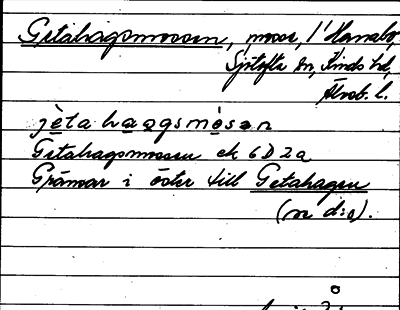 Getahagsmossen, mosse, i Hamsbo
Sjötofta sn, Kinds hd,
Älvsb. l.
jèta haagsmòsan
Getahagsmossen ek 6D2a
Gränsar i öster till Getahagen
(se d:o).